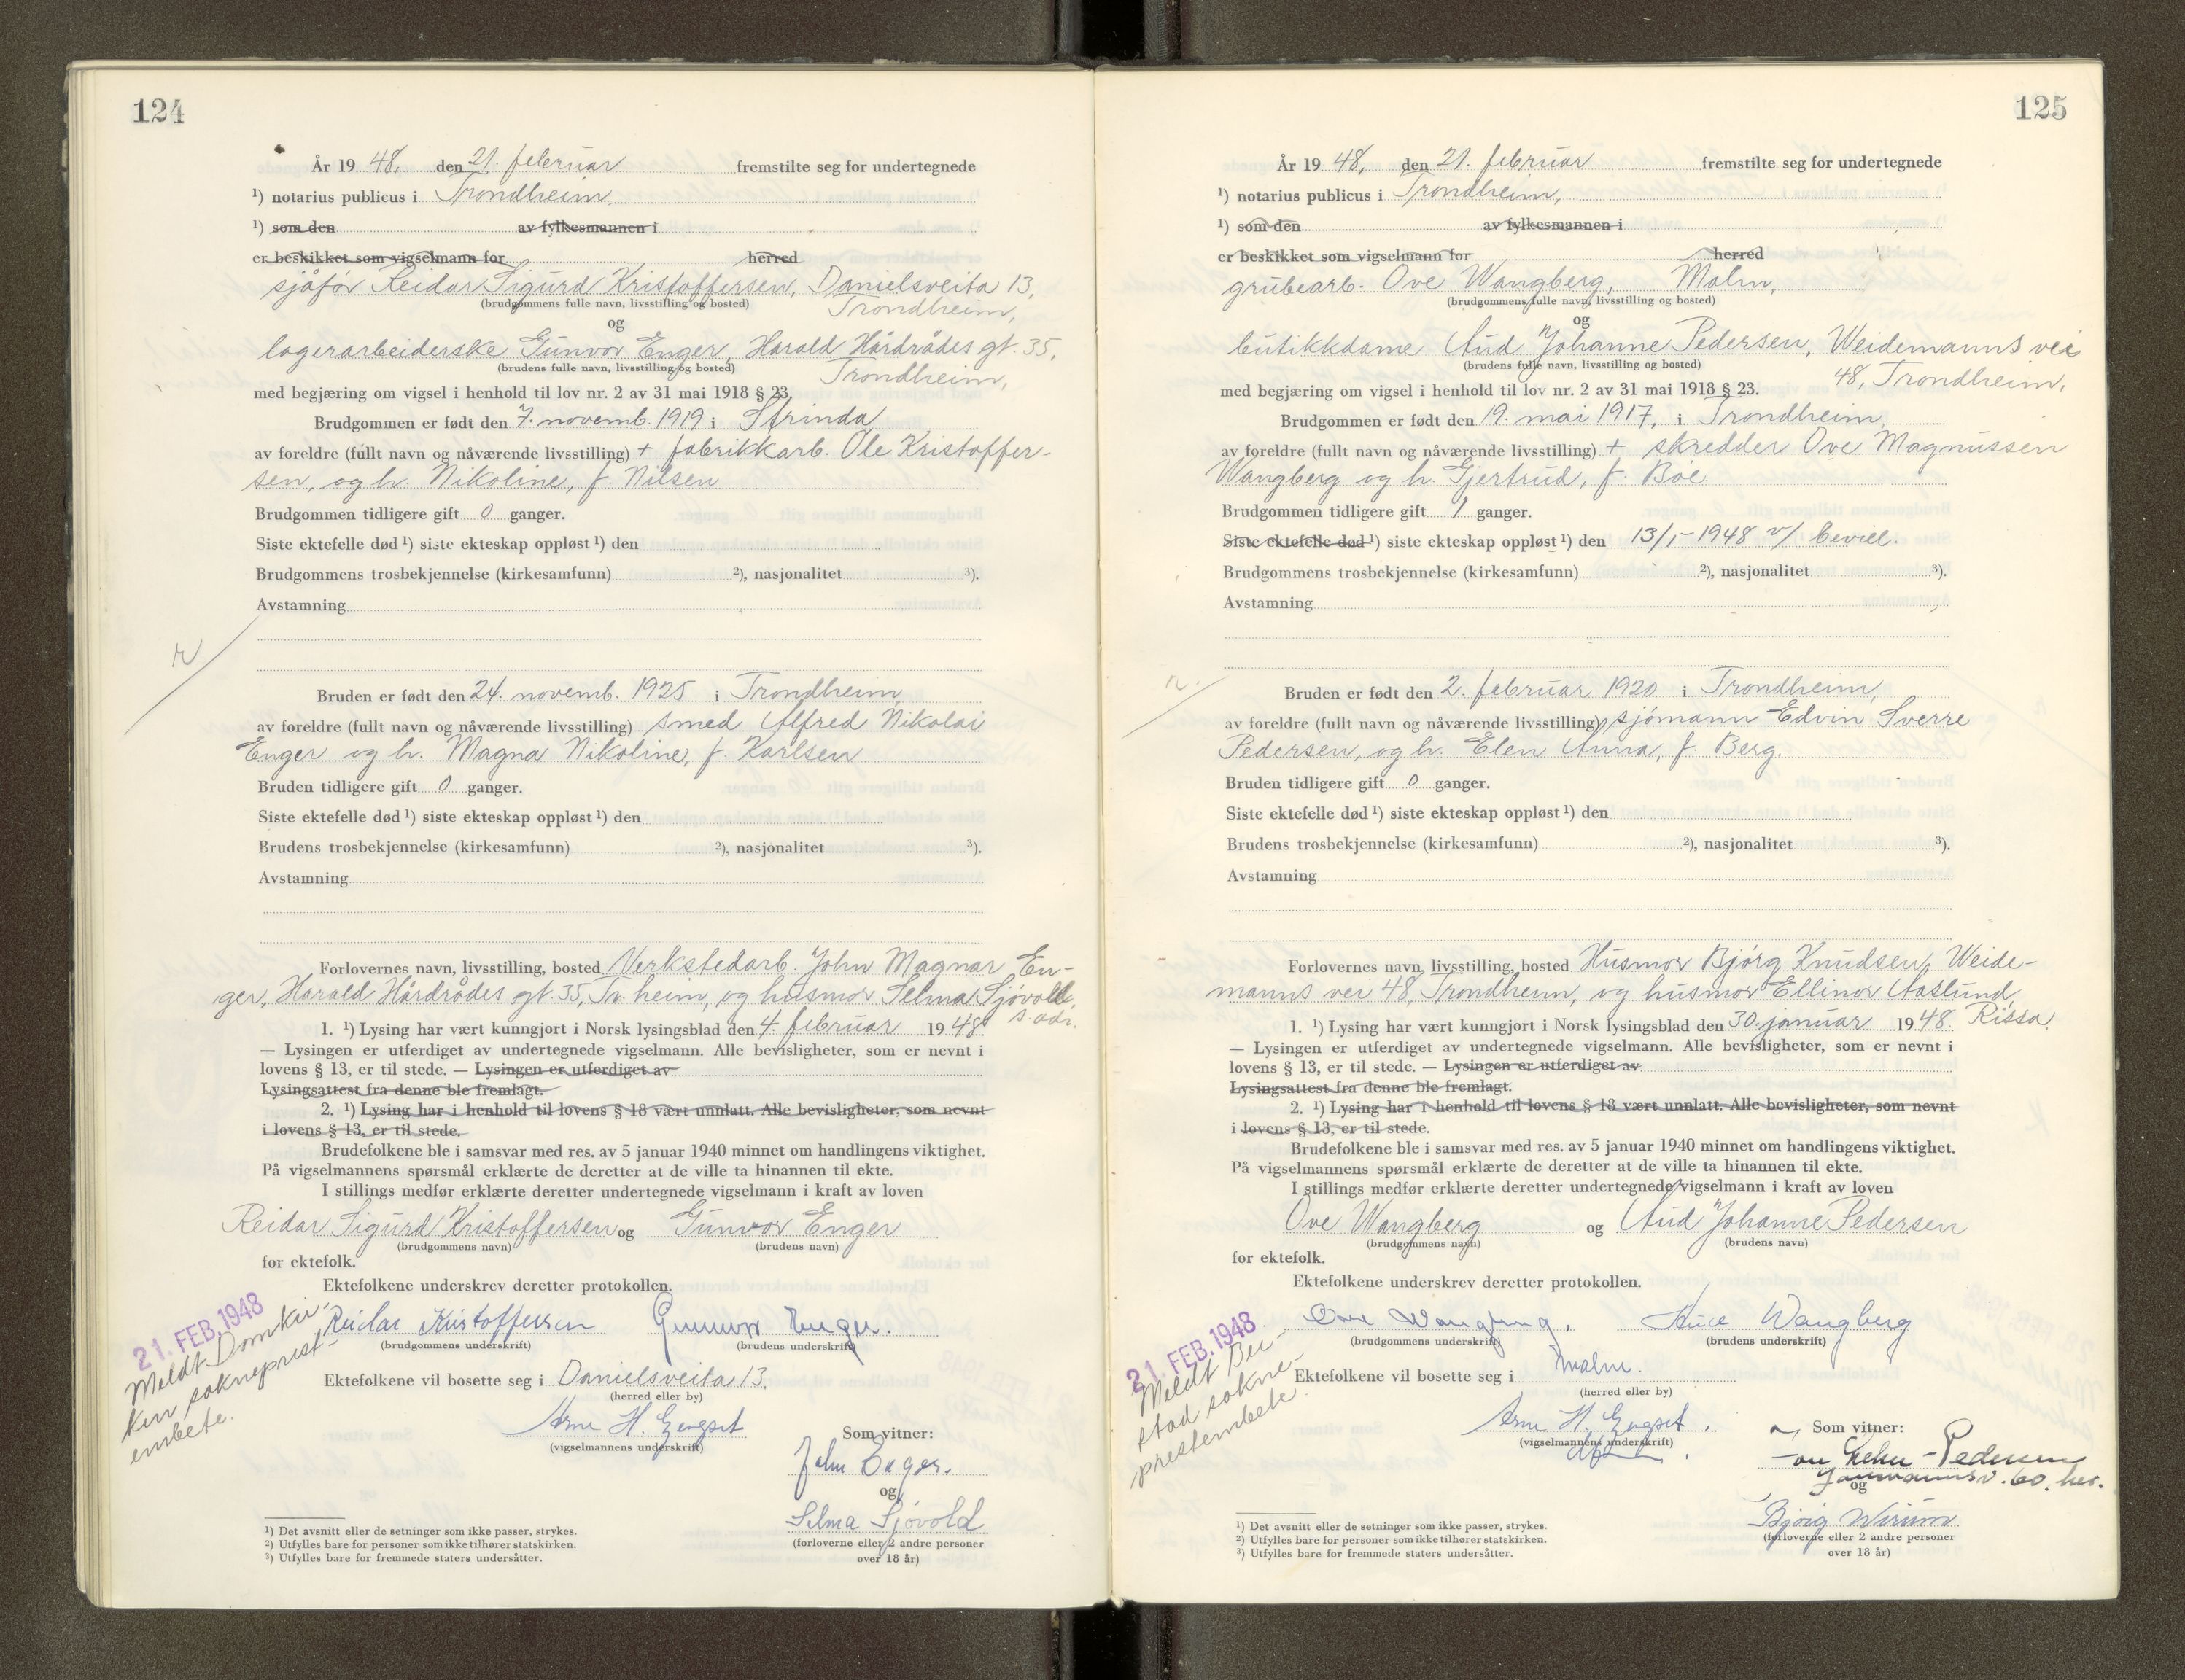 124
År 19 48, den 21. februar fremstilte seg for undertegnede
¹) notarius publicus i Trondheim,
¹) som den av fylkesmannen i
er beskikket som vigselmann for herred
sjåfør Reidar Sigurd Kristoffersen, Danielsveita 13,
(brudgommens fulle navn, livsstilling og bosted)
Trondheim,
og
lagerarbeiderske Gunvor Enger, Harald Hårdrådes gt. 35,
(brudens fulle navn, livsstilling og bosted)
Trondheim,
med begjæring om vigsel i henhold til lov nr. 2 av 31 mai 1918 § 23.
Brudgommen er født den 7. novemb. 1919 i Strinda
av foreldre (fullt navn og nåværende livsstilling) + fabrikkarb. Ole Kristoffer-
sen, og h. Nikoline, f. Nilsen
Brudgommen tidligere gift 0 ganger.
Siste ektefelle død ¹) siste ekteskap oppløst ¹) den
Brudgommens trosbekjennelse (kirkesamfunn) ²), nasjonalitet ³).
Avstamning
Bruden er født den 24. novemb. 1925 i Trondheim,
av foreldre (fullt navn og nåværende livsstilling) smed Alfred Nikolai
Enger og h. Magna Nikoline, f. Karlsen
Bruden tidligere gift 0 ganger.
Siste ektefelle død ¹) siste ekteskap oppløst ¹) den
Brudens trosbekjennelse (kirkesamfunn) ²), nasjonalitet ³).
Avstamning
Forlovernes navn, livsstilling, bosted Verkstedarb. John Magnar En-
ger, Harald Hårdrådes gt. 35, Tr.heim, og husmor Selma Sjøvold,
s. adr.
1. ¹) Lysing har vært kunngjort i Norsk lysingsblad den 4. februar 1948
— Lysingen er utferdiget av undertegnede vigselmann. Alle bevisligheter, som er nevnt i
lovens § 13, er til stede. — Lysingen er utferdiget av
Lysingsattest fra denne ble fremlagt.
2. ¹) Lysing har i henhold til lovens § 18 vært unnlatt. Alle bevisligheter, som nevnt
i lovens § 13, er til stede.
Brudefolkene ble i samsvar med res. av 5 januar 1940 minnet om handlingens viktighet.
På vigselmannens spørsmål erklærte de deretter at de ville ta hinannen til ekte.
I stillings medfør erklærte deretter undertegnede vigselmann i kraft av loven
Reidar Sigurd Kristoffersen og Gunvor Enger
(brudgommens navn) (brudens navn)
for ektefolk.
Ektefolkene underskrev deretter protokollen.
Reidar Kristoffersen Gunvor Enger.
(brudgommens underskrift) (brudens underskrift)
21. FEB. 1948
Meldt Domkir-
ken sokneprest-
embete.
Ektefolkene vil bosette seg i Danielsveita 13.
(herred eller by)
Arne H. Gengset
(vigselmannens underskrift)
Som vitner:
John Enger.
og
Selma Sjøvold
(forloverne eller 2 andre personer
over 18 år)
¹) Det avsnitt eller de setninger som ikke passer, strykes.
²) Utfylles bare for personer som ikke tilhører statskirken.
³) Utfylles bare for fremmede staters undersåtter.
125
År 19 48, den 21. februar fremstilte seg for undertegnede
¹) notarius publicus i Trondheim,
¹) som den av fylkesmannen i
er beskikket som vigselmann for herred
grubearb. Ove Wangberg, Malm,
(brudgommens fulle navn, livsstilling og bosted)
og
butikkdame Aud Johanne Pedersen, Weidemanns vei
(brudens fulle navn, livsstilling og bosted)
48, Trondheim,
med begjæring om vigsel i henhold til lov nr. 2 av 31 mai 1918 § 23.
Brudgommen er født den 19. mai 1917, i Trondheim,
av foreldre (fullt navn og nåværende livsstilling) + skredder Ove Magnussen
Wangberg og h. Gjertrud, f. Bøe
Brudgommen tidligere gift 1 ganger.
Siste ektefelle død ¹) siste ekteskap oppløst ¹) den 13/1-1948 v/ bevill.
Brudgommens trosbekjennelse (kirkesamfunn) ²), nasjonalitet ³).
Avstamning
Bruden er født den 2. februar 1920 i Trondheim,
av foreldre (fullt navn og nåværende livsstilling) sjømann Edvin Sverre
Pedersen, og h. Elen Anna, f. Berg.
Bruden tidligere gift 0 ganger.
Siste ektefelle død ¹) siste ekteskap oppløst ¹) den
Brudens trosbekjennelse (kirkesamfunn) ²), nasjonalitet ³).
Avstamning
Forlovernes navn, livsstilling, bosted Husmor Bjørg Knudsen, Weide-
manns vei 48, Trondheim, og husmor Ellinor Aaslund,
Rissa.
1. ¹) Lysing har vært kunngjort i Norsk lysingsblad den 30. januar 1948
— Lysingen er utferdiget av undertegnede vigselmann. Alle bevisligheter, som er nevnt i
lovens § 13, er til stede. — Lysingen er utferdiget av
Lysingsattest fra denne ble fremlagt.
2. ¹) Lysing har i henhold til lovens § 18 vært unnlatt. Alle bevisligheter, som nevnt
i lovens § 13, er til stede.
Brudefolkene ble i samsvar med res. av 5 januar 1940 minnet om handlingens viktighet.
På vigselmannens spørsmål erklærte de deretter at de ville ta hinannen til ekte.
I stillings medfør erklærte deretter undertegnede vigselmann i kraft av loven
Ove Wangberg og Aud Johanne Pedersen
(brudgommens navn) (brudens navn)
for ektefolk.
Ektefolkene underskrev deretter protokollen.
Ove Wangberg. Aud Wangberg
(brudgommens underskrift) (brudens underskrift)
21. FEB. 1948
Meldt Ber-
stad sokne-
prestembete.
Ektefolkene vil bosette seg i Malm.
(herred eller by)
Arne H. Gengset.
(vigselmannens underskrift)
Som vitner:
Pedersen
60. her.
og
Bjørg Wirum
(forloverne eller 2 andre personer
over 18 år)
¹) Det avsnitt eller de setninger som ikke passer, strykes.
²) Utfylles bare for personer som ikke tilhører statskirken.
³) Utfylles bare for fremmede staters undersåtter.